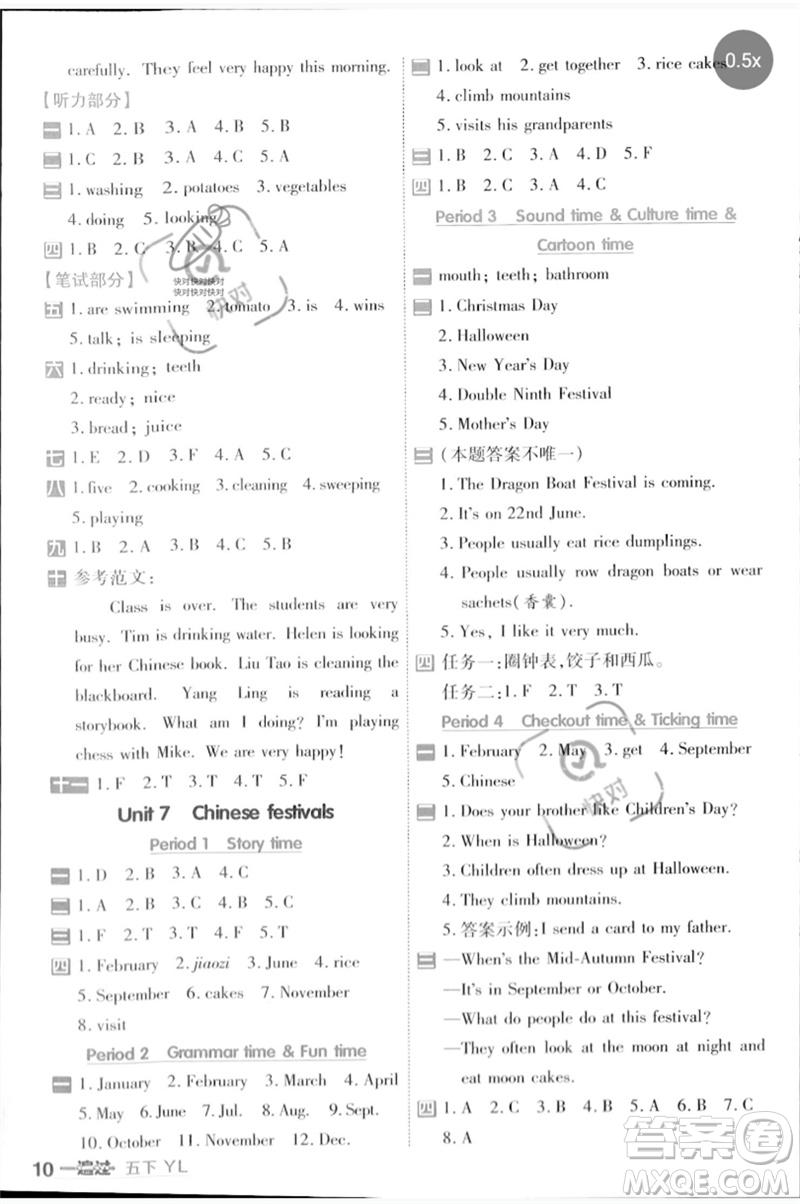 carefully. They feel very happy this morning.
【听力部分】
一 1. A 2. B 3. A 4. A 5. B
二 1. C 2. B 3. B 4. C 5. A
三 1. washing 2. potatoes 3. vegetables
4. doing 5. looking
四 1. B 2. C 3. B 4. C 5. A
【笔试部分】
五 1. are swimming 2. tomato 3. is 4. wins
5. talk; is sleeping
六 1. drinking; teeth
2. ready; nice
3. bread; juice
七 1. E 2. D 3. F 4. A 5. C
八 1. five 2. cooking 3. cleaning 4. sweeping
5. playing
九 1. B 2. A 3. C 4. A 5. B
十 参考范文:
Class is over. The students are very
busy. Tim is drinking water. Helen is looking
for her Chinese book. Liu Tao is cleaning the
blackboard. Yang Ling is reading a
storybook. What am I doing? I'm playing
chess with Mike. We are very happy!
十一 1. F 2. T 3. T 4. T 5. F
Unit 7 Chinese festivals
Period 1 Story time
一 1. D 2. B 3. A 4. C
二 1. A 2. B 3. A 4. C 5. C
三 1. F 2. T 3. T 4. F 5. T
四 1. February 2. jiaozi 3. June 4. rice
5. September 6. cakes 7. October
8. visit
Period 2 Grammar time & Fun time
一 1. January 2. February 3. March 4. April
5. May 6. June 7. July 8. Aug. 9. Sept.
10. October 11. November 12. Dec.
10 一遍过 五下 YL
0.5x
二 1. look at 2. get together 3. rice cakes
4. climb mountains
5. visits his grandparents
三 1. B 2. C 3. A 4. D 5. F
四 1. B 2. A 3. A 4. C
Period 3 Sound time & Culture time &
Cartoon time
一 mouth; teeth; bathroom
二 1. Christmas Day
2. Halloween
3. New Year's Day
4. Double Ninth Festival
5. Mother's Day
三 (本题答案不唯一)
1. The Dragon Boat Festival is coming.
2. It's on 22nd June.
3. People usually eat rice dumplings.
4. People usually row dragon boats or wear
sachets(香囊).
5. Yes, I like it very much.
四 任务一:圈钟表,饺子和西瓜。
任务二:1. F 2. T 3. T
Period 4 Checkout time & Ticking time
一 1. February 2. May 3. get 4. September
5. Chinese
二 1. Does your brother like Children's Day?
2. When is Halloween?
3. Children often dress up at Halloween.
4. They climb mountains.
5. 答案示例:I send a card to my father.
三 —When's the Mid-Autumn Festival?
—It's in September or October.
—What do people do at this festival?
—They often look at the moon at night and
eat moon cakes.
四 1. A 2. C 3. A 4. B 5. B 6. B 7. C
8. A
快对快对快对
快对快对快对
快对
快对
答案圈
MXQE.COM